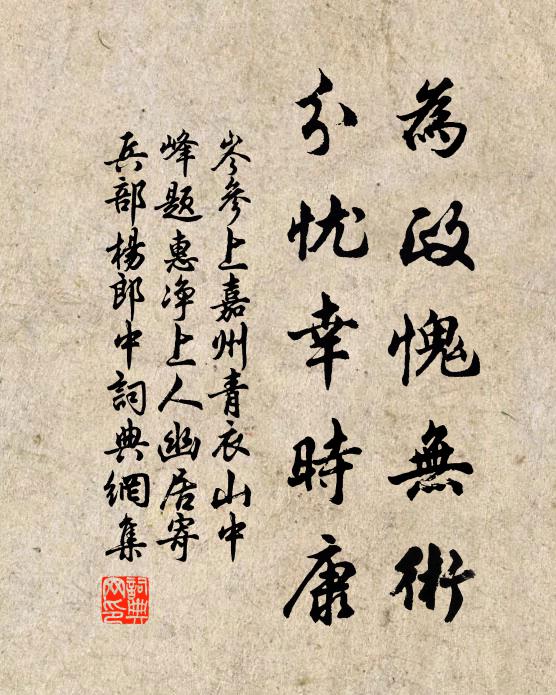 為政愧無術
分忧幸時康
岑参上嘉州青衣山中
峰题惠净上人幽居寄
兵部楊郎中詞典網集
詞典
网印